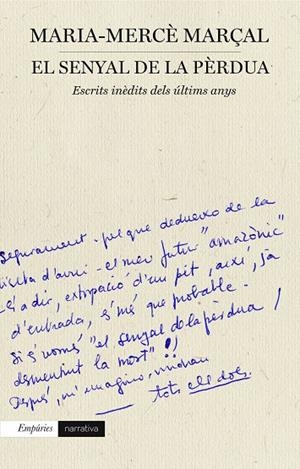 MARIA-MERCÈ MARÇAL
EL SENYAL DE LA PÈRDUA
Escrits inèdits dels últims anys
Segurament -pel que dedueixo de la
visita d'avui- el meu futur "amazònic"
-és a dir, extirpació d'un pit, així, ja
d'entrada, s'és que probable.
Si és només "el senyal de la pèrdua /
desmentint la mort"!!
Després, m'imagino, vindran
tots els dols.
Empúries
narrativa